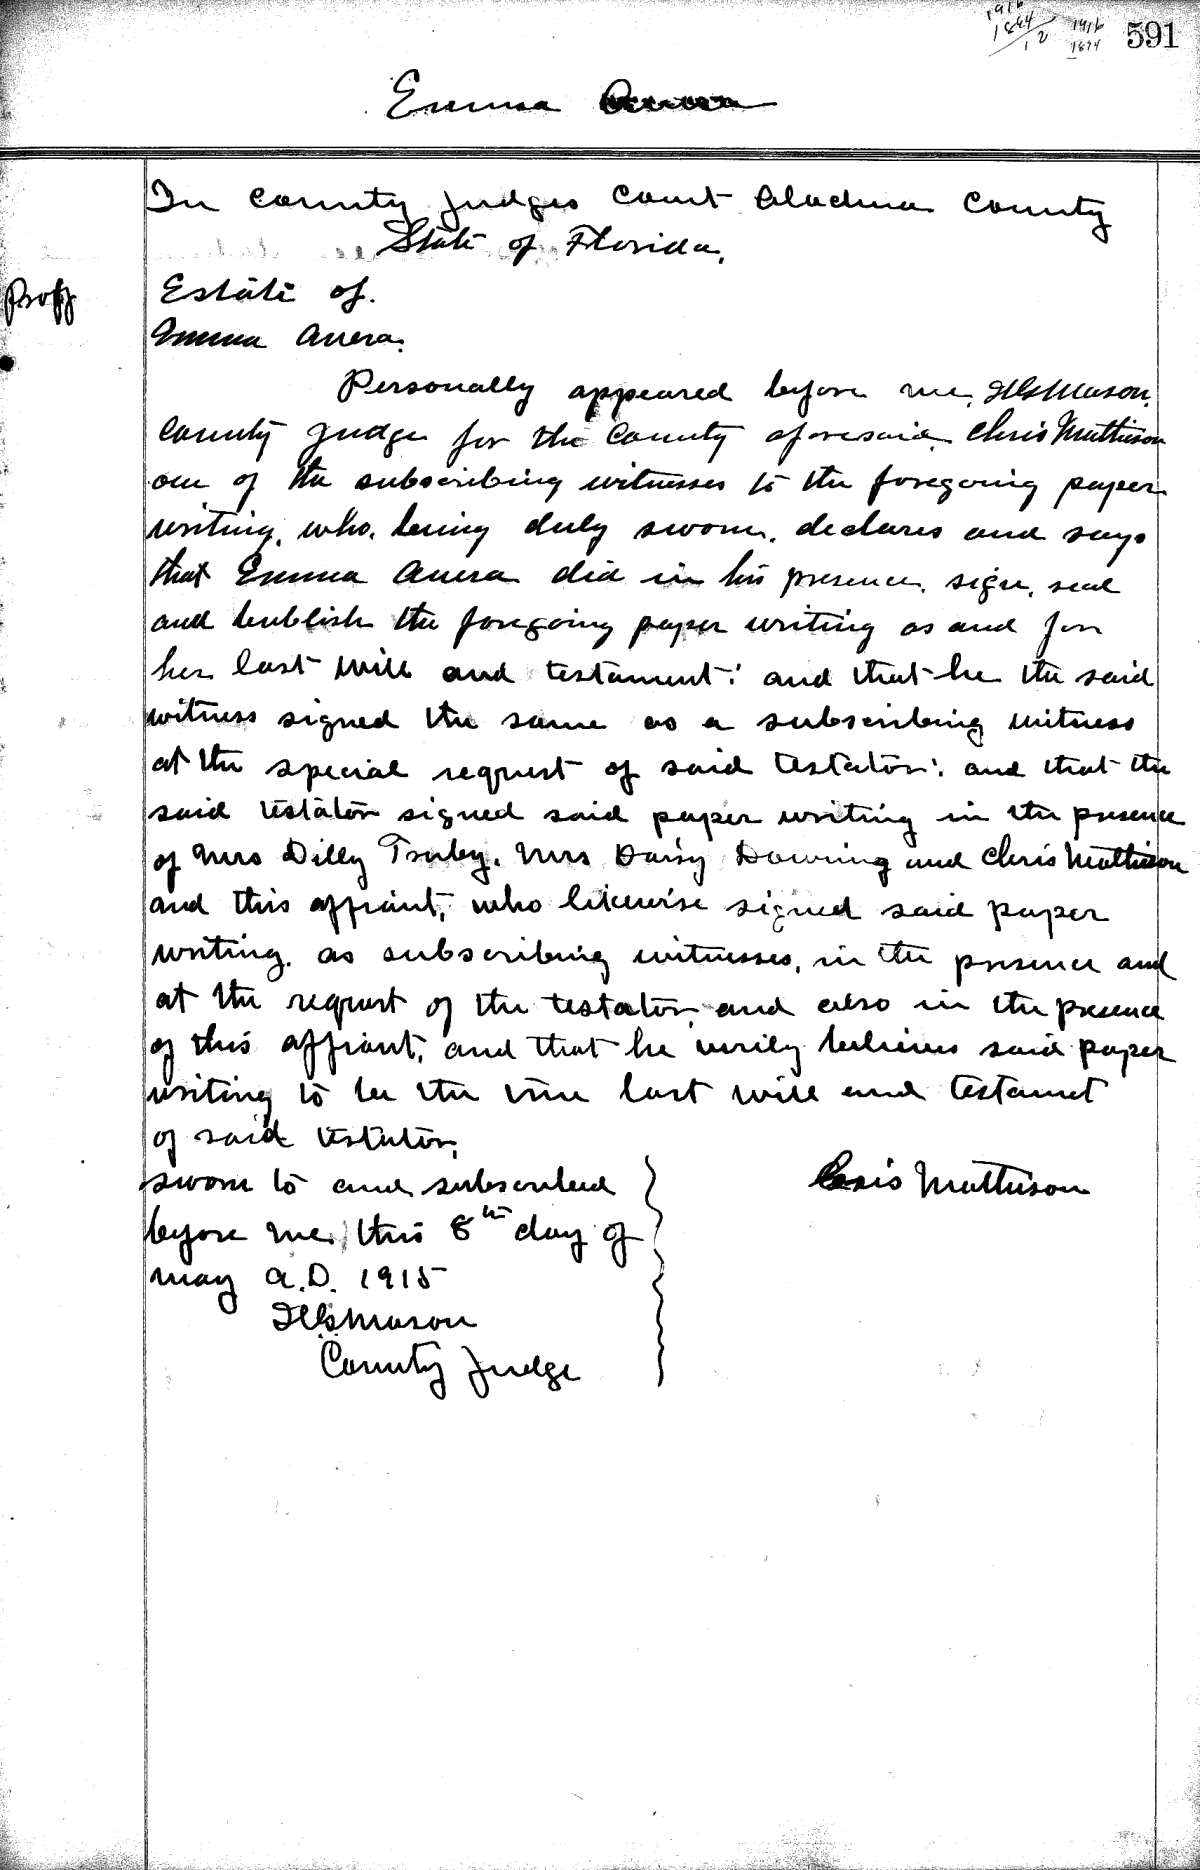 1916
1894
12
1916
1894
591
Emma
In County Judges Court Alachua County
State of Florida.
Proof
Estate of.
Emma Auera.
Personally appeared before me, H.G. Mason.
County Judge for the County aforesaid Chris Matheson
one of the subscribing witnesses to the foregoing paper
writing, who, being duly sworn, declares and says
that Emma Auera did in his presence, sign, seal
and publish the foregoing paper writing as and for
her last will and testament: and that he the said
witness signed the same as a subscribing witness
at the special request of said testator: and that the
said testator signed said paper writing in the presence
of Mrs Dilly Truby, Mrs Daisy Downing and Chris Matheson
and this affiant, who likewise signed said paper
writing, as subscribing witnesses, in the presence and
at the request of the testator, and also in the presence
of this affiant, and that he verily believes said paper
writing to be the true last will and testamet
of said testator,
sworn to and subscribed
before me, this 8th day of
may A.D. 1915
H.G. Mason
County Judge
Chris Matheson